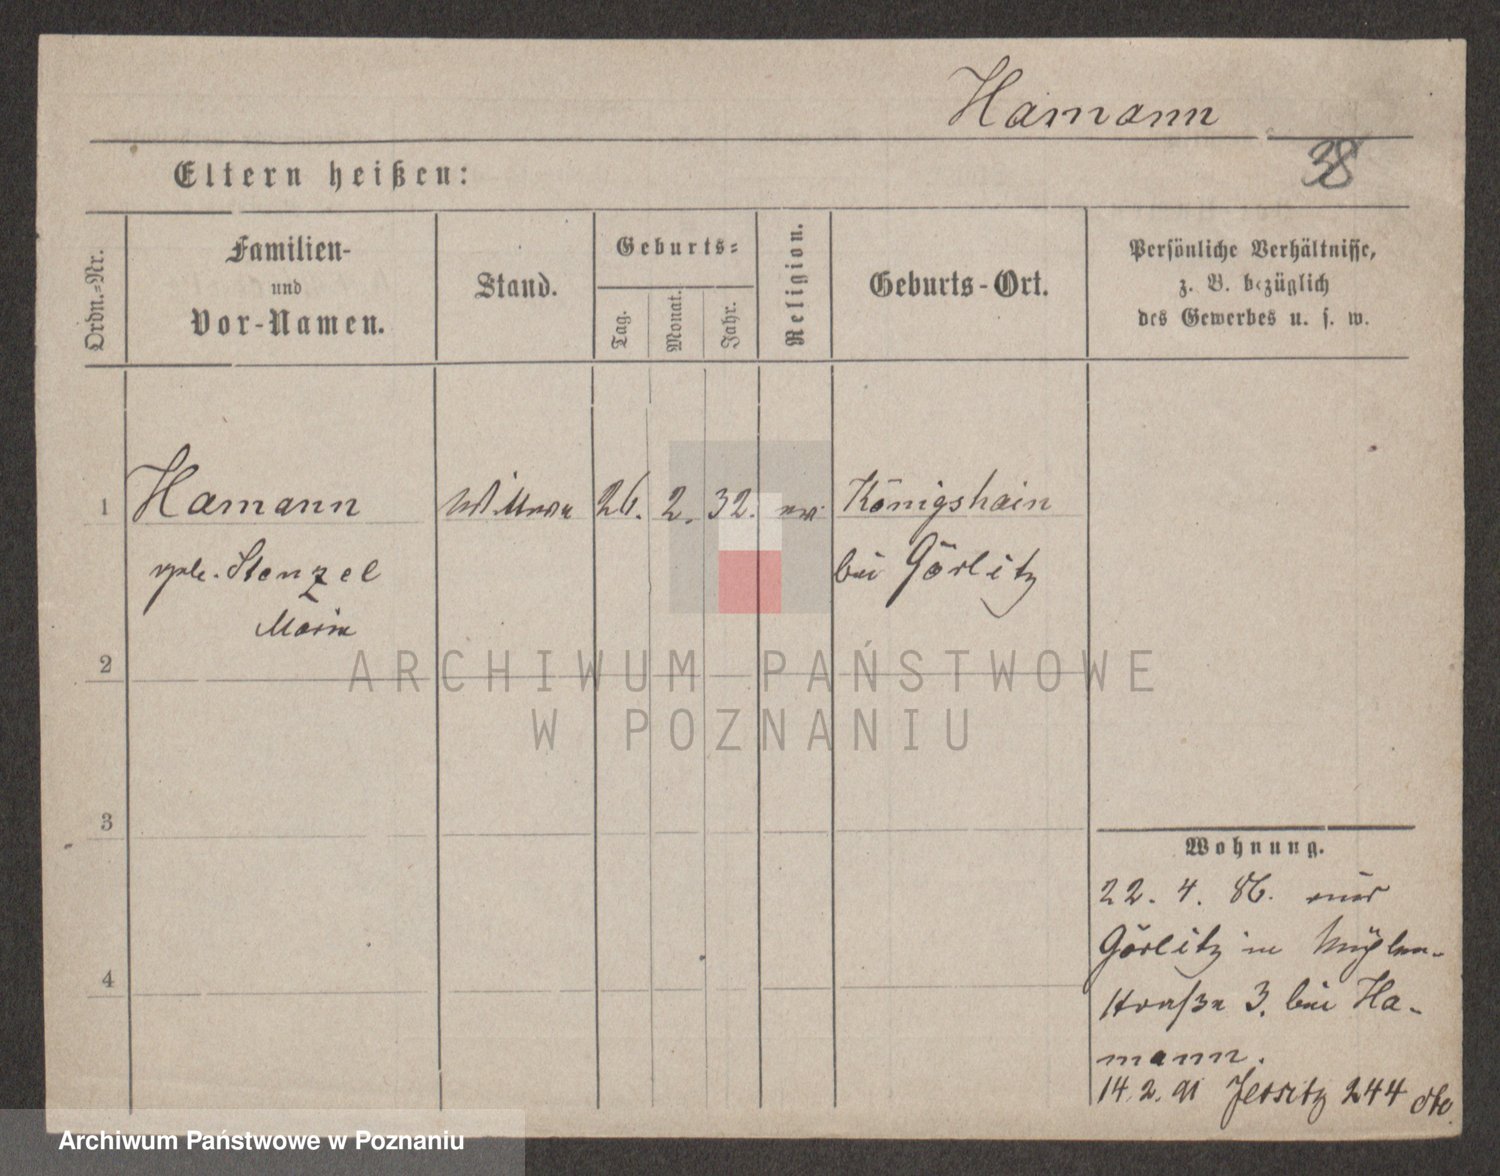 Hamann
38
Eltern heißen:
Ordn.-Nr.
Familien-
und
Vor-Namen.
Stand.
Geburts-
Tag.
Monat.
Jahr.
Religion.
Geburts-Ort.
Persönliche Verhältnisse,
z. B. bezüglich
des Gewerbes u. s. w.
1
Hamann
Wittwe
26.
2.
32.
ev.
Königshain
geb. Stenzel
bei Görlitz
Marie
2
ARCHIWUM PAŃSTWOWE
W POZNANIU
3
Wohnung.
22. 4. 86. aus
Görlitz in Mühlen-
4
straße 3. bei Ha-
mann.
14. 2. 91 Jersitz 244 dto
Archiwum Państwowe w Poznaniu